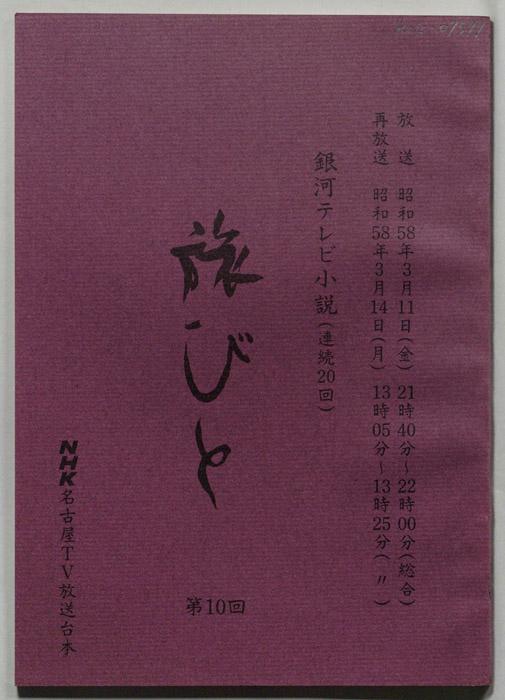 放送 昭和58年3月11日(金) 21時40分～22時00分(総合)
再放送 昭和58年3月14日(月) 13時05分～13時25分(〃)
銀河テレビ小説(連続20回)
旅びと
第10回
NHK名古屋TV放送台本